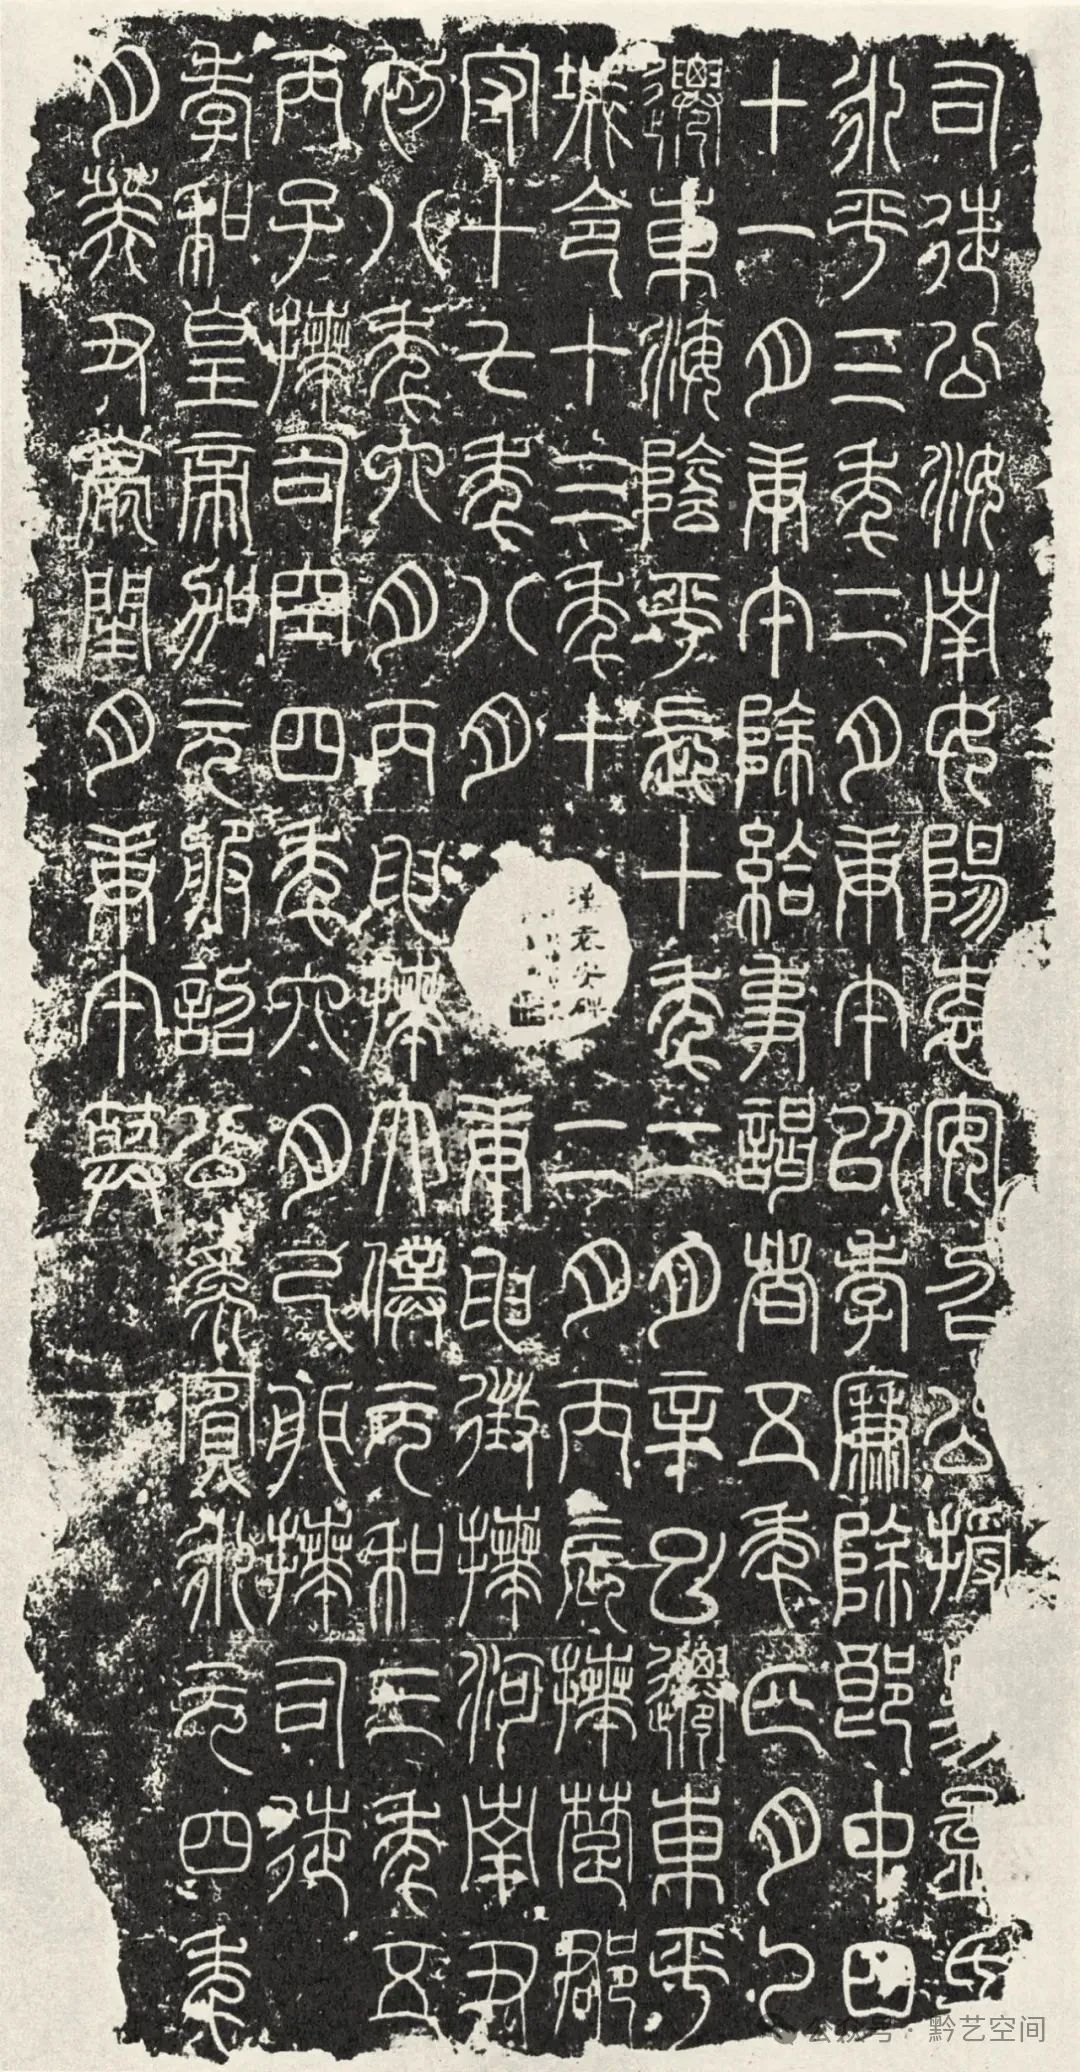 司徒公汝南女陽袁安召公授易孟氏
永平三年二月庚午以孝廉除郎中四
十一月庚午除給事謁者五年正月乙
遷東海陰平長十年二月辛巳遷東平
城令十三年十二月丙辰拜楚郡
守十七年八月庚申徵拜河南尹
初八年六月丙申拜太僕元和三年五
丙子拜司空四年六月己卯拜司徒
孝和皇帝加元服詔公為賓永元四年
月癸丑薨閏月庚午葬
漢袁安碑
公众号·黔艺空间